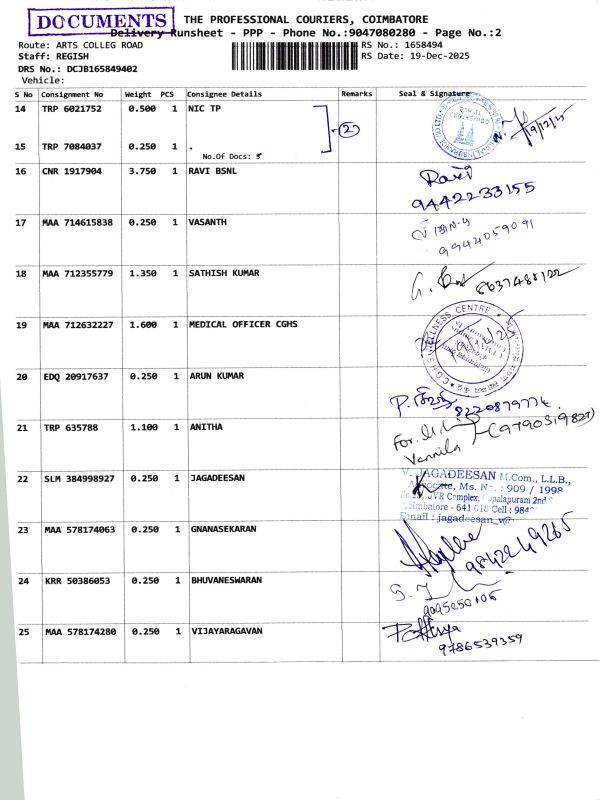 DOCUMENTS
THE PROFESSIONAL COURIERS, COIMBATORE
Delivery Runsheet - PPP - Phone No.:9047080280 - Page No.:2
Route: ARTS COLLEG ROAD
RS No.: 1658494
Staff: REGISH
RS Date: 19-Dec-2025
DRS No.: DCJB165849402
Vehicle:
S No Consignment No Weight PCS Consignee Details Remarks Seal & Signature
14 TRP 6021752 0.500 1 NIC TP
2
19/12/25
15 TRP 7084037 0.250 1 .
No.Of Docs:
16 CNR 1917904 3.750 1 RAVI BSNL
Ravi
9442233155
17 MAA 714615838 0.250 1 VASANTH
9944059091
18 MAA 712355779 1.350 1 SATHISH KUMAR
8637488122
19 MAA 712632227 1.600 1 MEDICAL OFFICER CGHS
WELLNESS CENTRE
20 EDQ 20917637 0.250 1 ARUN KUMAR
8220879774
21 TRP 635788 1.100 1 ANITHA
For.
Vennila
(9790319827)
22 SLM 384998927 0.250 1 JAGADEESAN
V. JAGADEESAN M.Com., L.L.B.,
Advocate, Ms. No. : 909 / 1998
JVR Complex, Gopalapuram 2nd
Coimbatore - 641 018 Cell : 984
Email : jagadeesan_v@
23 MAA 578174063 0.250 1 GNANASEKARAN
9842249265
24 KRR 50386053 0.250 1 BHUVANESWARAN
9095050105
25 MAA 578174280 0.250 1 VIJAYARAGAVAN
9786539359